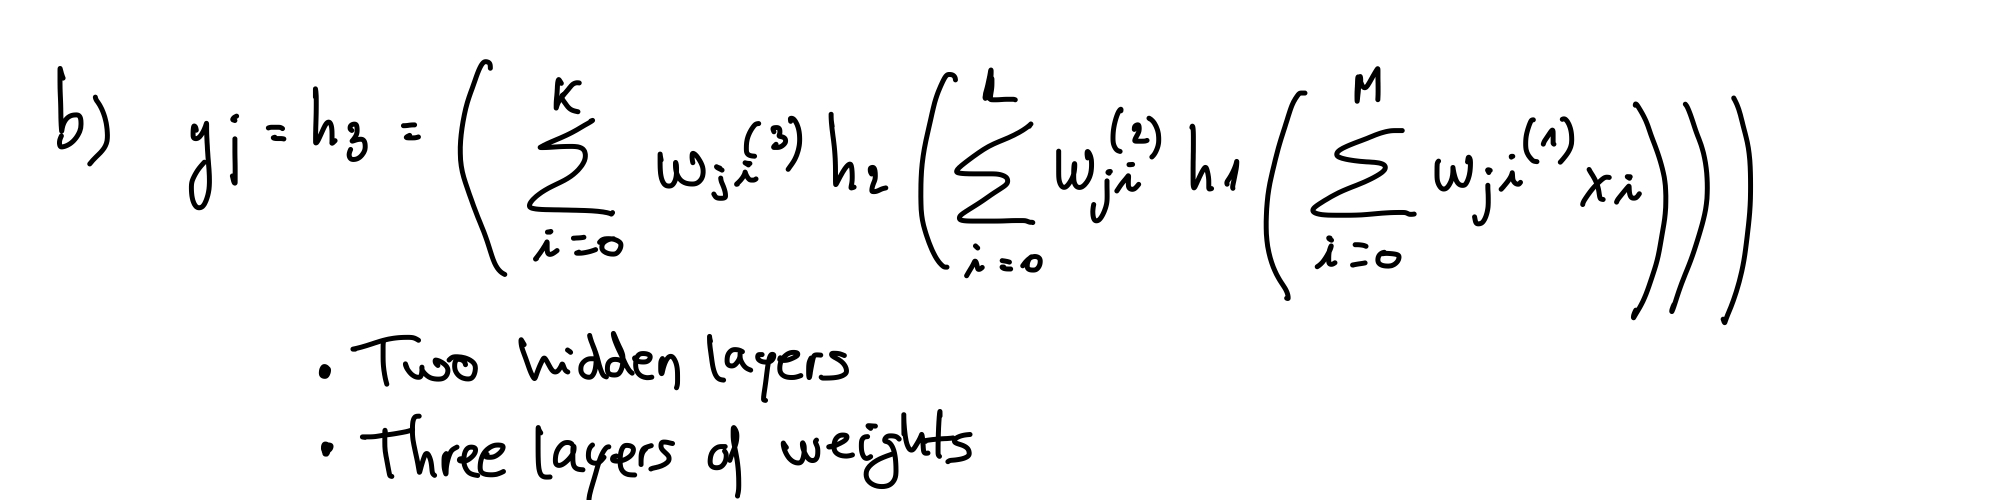 b) yj = h₃ = ( ∑_{i=0}^{K} w_{ji}^{(3)} h₂ ( ∑_{i=0}^{L} w_{ji}^{(2)} h₁ ( ∑_{i=0}^{M} w_{ji}^{(1)} xi ) ) )
• Two hidden layers
• Three layers of weights